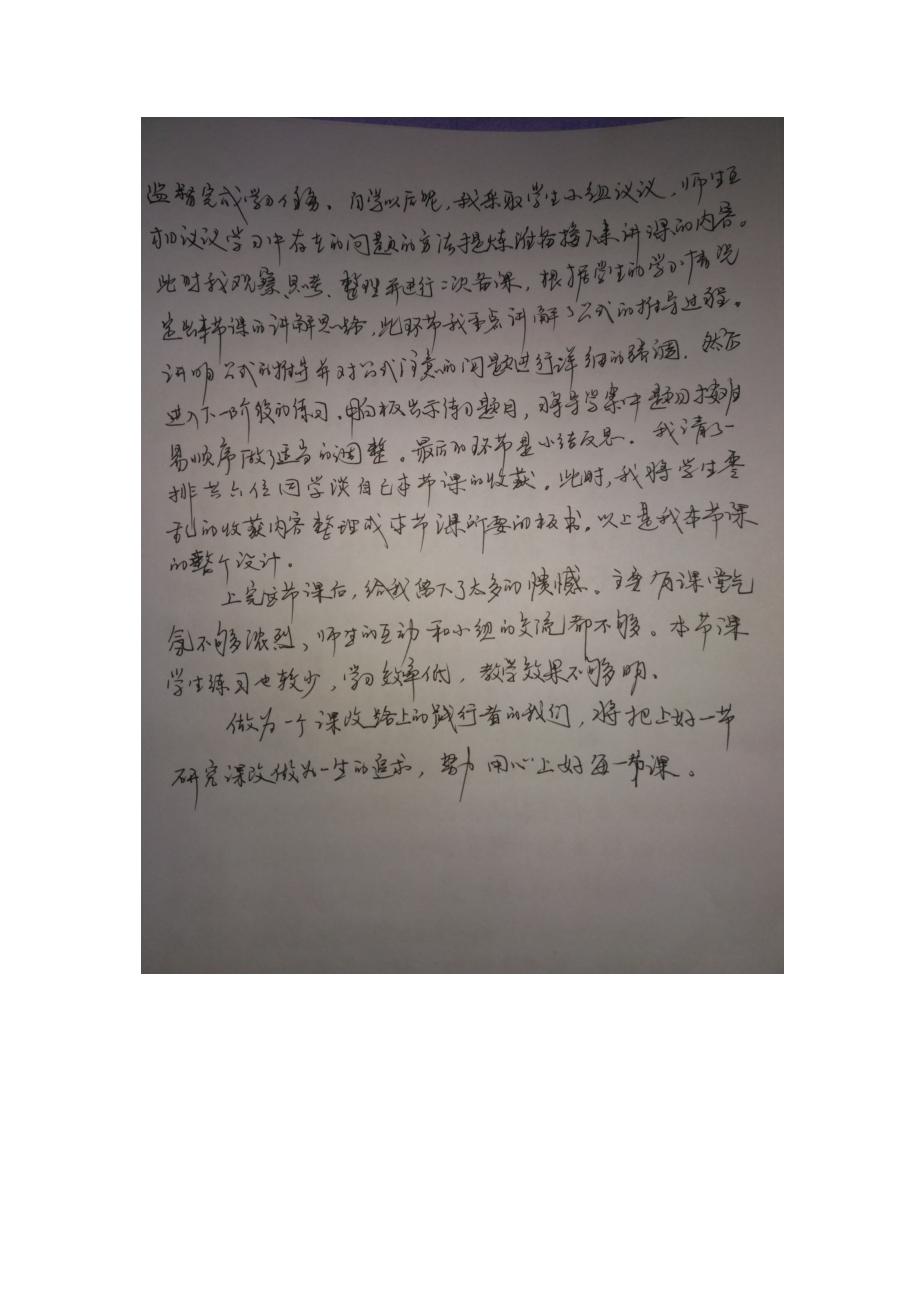 监督完成学习任务。自学以后呢，我采取学生小组议议，师生互
相议议学习中存在的问题的方法提炼准备接下来讲课的内容。
此时我观察、思考、整理并进行二次备课，根据学生的学习情况
定出本节课的讲解思路，此环节我重点讲解了公式的推导过程。
讲明公式的推导并对公式注意的问题进行详细的强调．然后
进入下一阶段的练习．用白板出示练习题目，将导学案中题目按
易顺序做了适当的调整。最后的环节是小结反思。我请了一
排共六位同学谈自己本节课的收获。此时，我将学生零
乱的收获内容整理成本节课所要的板书。以上是我本节课
的整个设计。
上完这节课后，给我留下了太多的愦憾。主要有课堂气
氛不够浓烈、师生的互动和小组的交流都不够。本节课
学生练习也较少，学习效率低，教学效果不够明。
做为一个课改路上的践行者的我们，将把上好一节
研究课改做为一生的追求，努力用心上好每一节课。